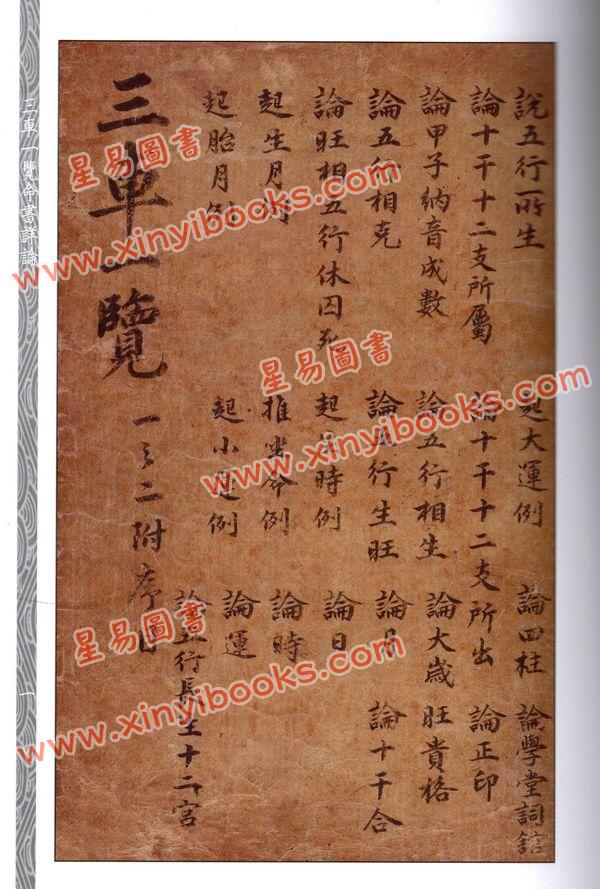 說五行所生 起大運例 論四柱 論學堂詞舘
論十干十二支所屬 論十干十二支所出 論正印
論甲子納音成數 論五行相生 論大歲 旺貴格
論五行相克 論五行生旺 論月 論十干合
論旺相五行休囚死 起生時例 論日
起生月例 推 例 論時
起胎月例 起小運例 論運
論五行長生十二宮
三車一覽 一之二附序目
三車一覽命書詳論
一
星易圖書
www.xinyibooks.com
星易圖書
www.xinyibooks.com
星易圖書
www.xinyibooks.com